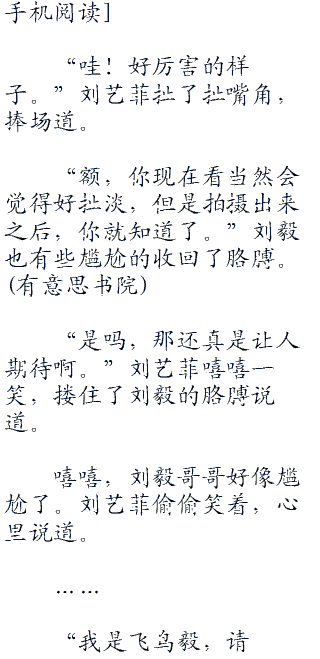 手机阅读]
“哇！好厉害的样
子。”刘艺菲扯了扯嘴角，
捧场道。
“额，你现在看当然会
觉得好扯淡，但是拍摄出来
之后，你就知道了。”刘毅
也有些尴尬的收回了胳膊。
(有意思书院)
“是吗，那还真是让人
期待啊。”刘艺菲嘻嘻一
笑，搂住了刘毅的胳膊说
道。
嘻嘻，刘毅哥哥好像尴
尬了。刘艺菲偷偷笑着，心
里说道。
……
“我是飞鸟毅，请